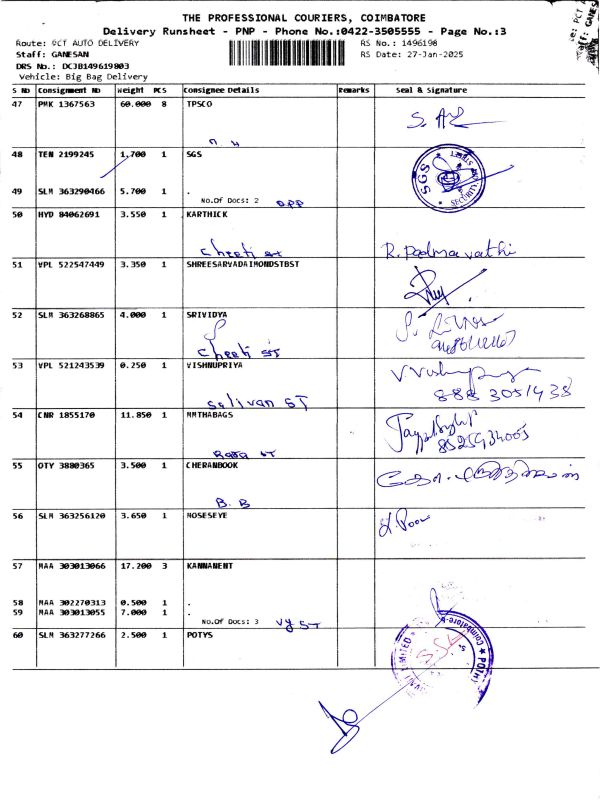 THE PROFESSIONAL COURIERS, COIMBATORE
Delivery Runsheet - PNP - Phone No.:0422-3505555 - Page No.:3
Route: PCT AUTO DELIVERY
RS No.: 1496198
Staff: GANESAN
RS Date: 27-Jan-2025
DRS No.: DCJB149619803
Vehicle: Big Bag Delivery
S No Consignment No Weight PCS Consignee Details Remarks Seal & Signature
47 PMK 1367563 60.000 8 TPSCO
48 TEN 2199245 1.700 1 SGS
SGS
SECURITY
49 SLM 363290466 5.700 1 .
No.Of Docs: 2
50 HYD 84062691 3.550 1 KARTHICK
Cheeti st
R. Padmavathi
51 VPL 522547449 3.350 1 SHREESARVADAIMONDSTBST
52 SLM 363268865 4.000 1 SRIVIDYA
Cheeti ST
53 VPL 521243539 0.250 1 VISHNUPRIYA
Selivan ST
888 3051438
54 CNR 1855170 11.850 1 MMTHABAGS
Raja ST
8525934005
55 OTY 3880365 3.500 1 CHERANBOOK
B. B
56 SLM 363256120 3.650 1 MOSESEYE
57 MAA 303013066 17.200 3 KANNANENT
58 MAA 302270313 0.500 1 .
59 MAA 303013055 7.000 1 .
No.Of Docs: 3 VY ST
60 SLM 363277266 2.500 1 POTYS
LIMITED
Coimbatore